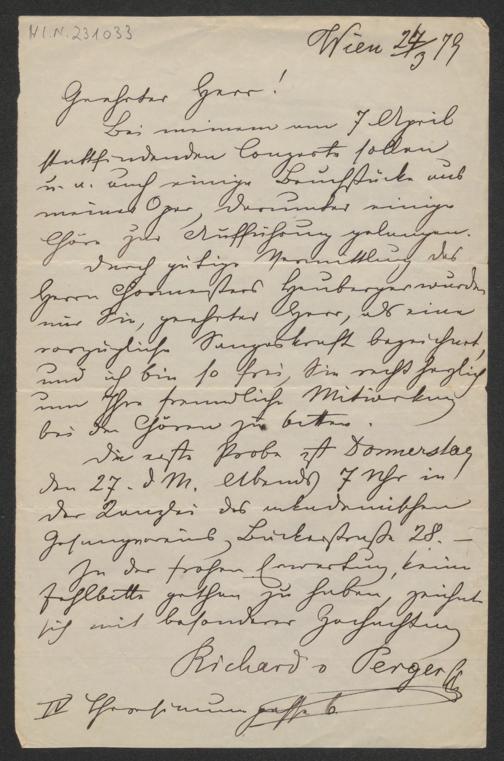 H.I.N. 231033
Wien 24/3 79
Geehrter Herr!
Bei meinem am 7 April
stattfindenden Conzerte sollen
u. a. auch einige Bruchstücke aus
meiner Oper, darunter einige
Chöre zur Aufführung gelangen.
Durch gütige Vermittlung des
Herrn Chormeisters Heuberger wurden
mir Sie, geehrter Herr, als eine
vorzügliche Sangeskraft bezeichnet,
und ich bin so frei, Sie recht herzlich
um Ihre freundliche Mitwirkung
bei den Chören zu bitten.
Die erste Probe ist Donnerstag
den 27. d M. Abends 7 Uhr in
der Kanzlei des akademischen
Gesangvereins, 28. –
In der frohen Erwartung, keine
Fehlbitte gethan zu haben, zeichnet
sich mit besonderer Hochachtung
Richard v Perger
IV gasse 6